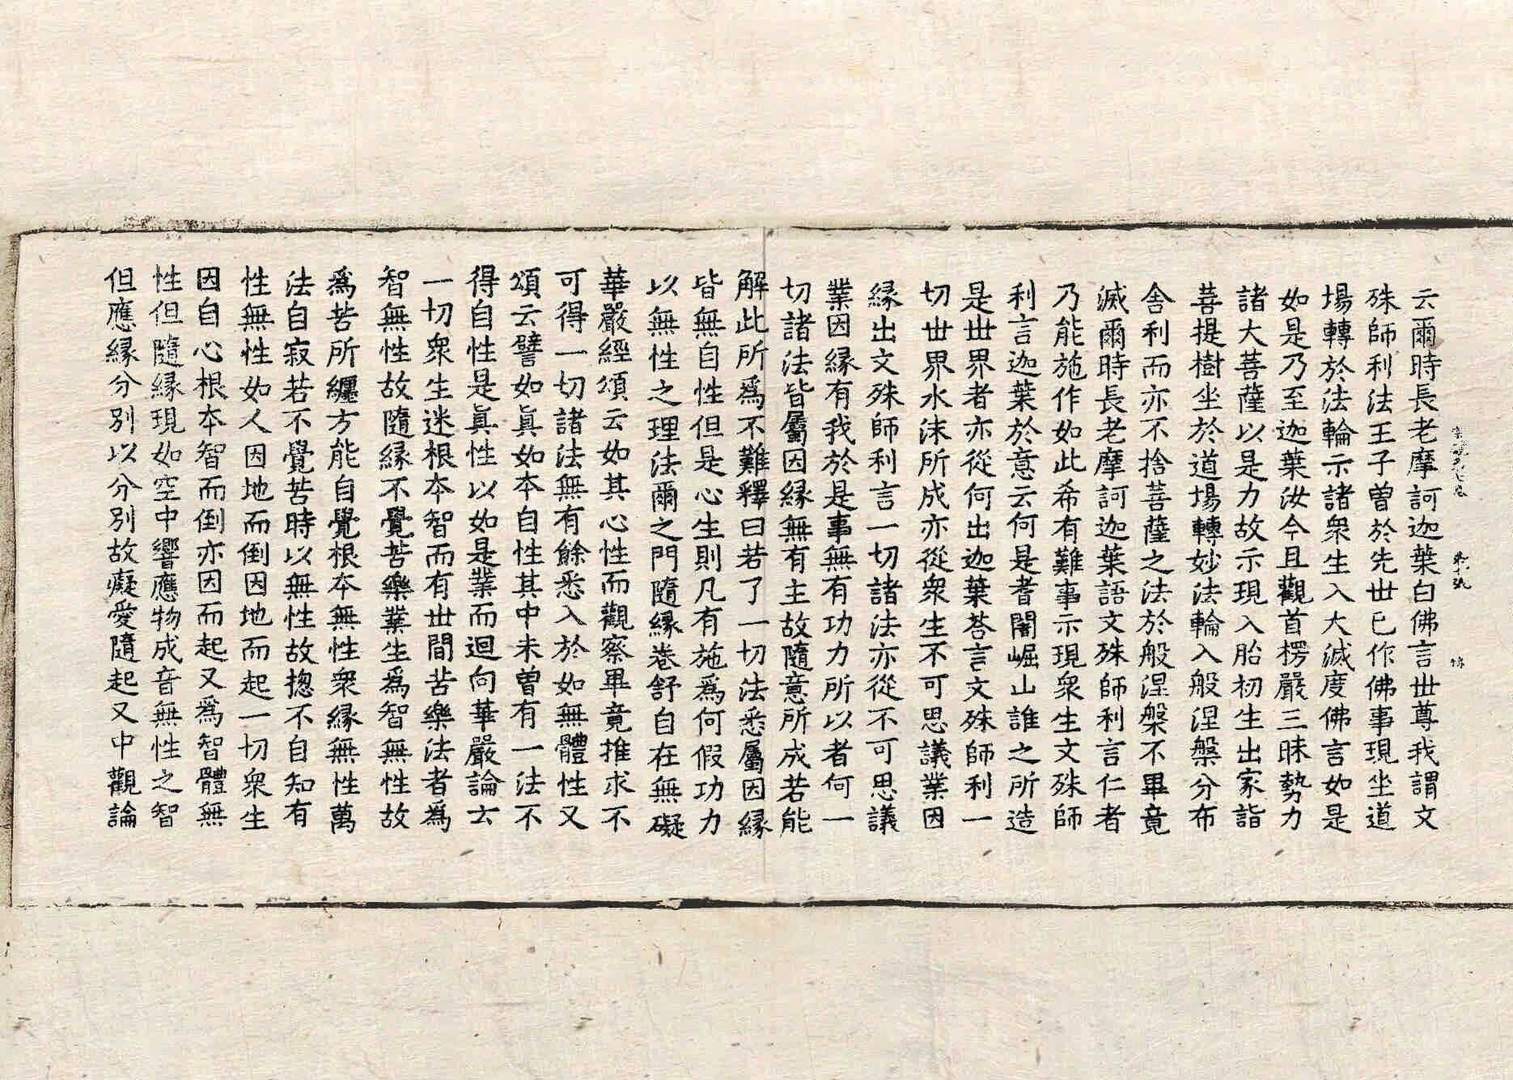 云爾時長老摩訶迦葉白佛言世尊我謂文
殊師利法王子曽於先世已作佛事現坐道
場轉於法輪示諸衆生入大滅度佛言如是
如是乃至迦葉汝今且觀首楞嚴三昧勢力
諸大菩薩以是力故示現入胎初生出家詣
菩提樹坐於道場轉妙法輪入般涅槃分布
舎利而亦不捨菩薩之法於般涅槃不畢竟
滅爾時長老摩訶迦葉語文殊師利言仁者
乃能施作如此希有難事示現衆生文殊師
利言迦葉於意云何是耆闍崛山誰之所造
是世界者亦從何出迦葉荅言文殊師利一
切世界水沫所成亦從衆生不可思議業因
縁出文殊師利言一切諸法亦從不可思議
業因縁有我於是事無有功力所以者何一
切諸法皆屬因縁無有主故隨意所成若能
解此所為不難釋曰若了一切法悉屬因縁
皆無自性但是心生則凡有施為何假功力
以無性之理法爾之門隨縁卷舒自在無礙
華嚴經頌云如其心性而觀察畢竟推求不
可得一切諸法無有餘悉入於如無體性又
頌云譬如眞如本自性其中未曽有一法不
得自性是眞性以如是業而迴向華嚴論云
一切衆生迷根本智而有世間苦樂法者為
智無性故隨縁不覺苦樂業生為智無性故
為苦所纒方能自覺根本無性衆縁無性萬
法自寂若不覺苦時以無性故揔不自知有
性無性如人因地而倒因地而起一切衆生
因自心根本智而倒亦因而起又為智體無
性但隨縁現如空中響應物成音無性之智
但應縁分別以分別故癡愛隨起又中觀論